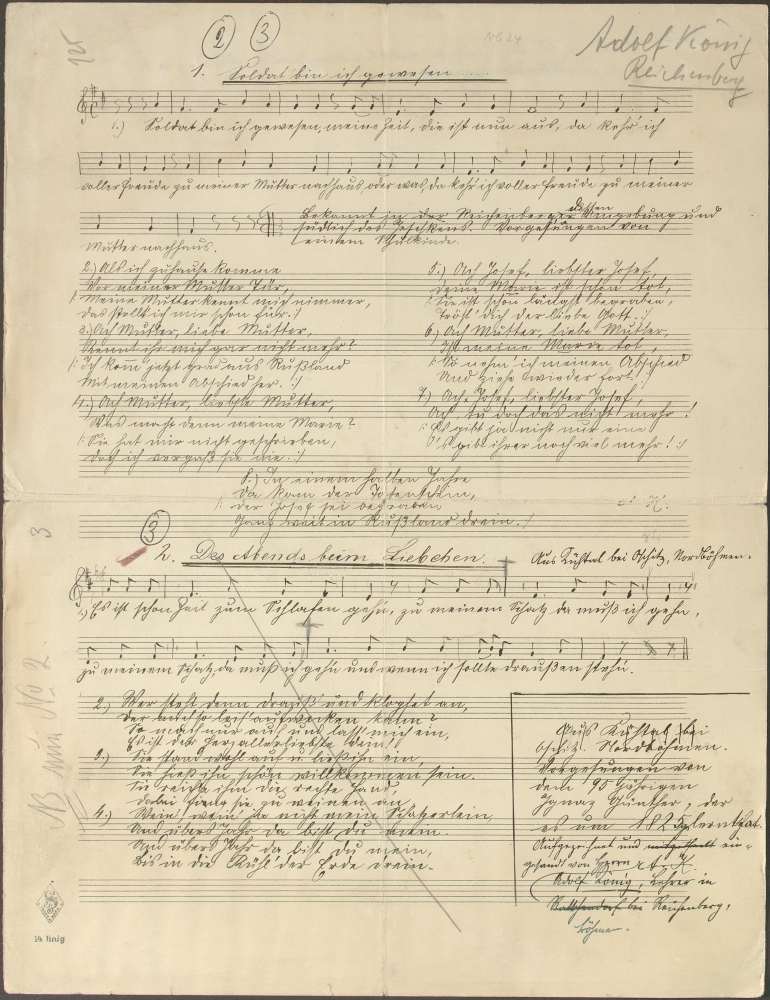 125
2 3
Adolf König
Reichenberg
1. Soldat bin ich gewesen.....
1.) Soldat bin ich gewesen, meine Zeit, die ist nun aus, da kehr' ich
voller Freude zu meiner Mutter nachhaus oder was da kehr' ich voller Freude zu meiner
Mutter nachhaus.
Bekannt in der Reichenberger Umgebung und
südlich des Jeschkens. Vorgesungen von
einem Schulkinde.
2.) Als ich zuhause komme
Vor meiner Mutter Tür,
/: Meine Mutter kennt mich nimmer,
Das stellt ich mir schon für. :/
3.) Ach Mutter, liebe Mutter,
Kennt ihr mich gar nicht mehr?
/: Ich komm' jetzt grad aus Rußland
Mit meinem Abschied her. :/
4.) Ach Mutter, liebste Mutter,
Was macht denn meine Marie?
/: Sie hat mir nicht geschrieben,
Doch ich vergaß sie nie. :/
5.) Ach Josef, liebster Josef,
Deine Marie ist schon tot,
/: Sie ist schon längst begraben,
Tröst' dich der liebe Gott. :/
6.) Ach Mutter, liebe Mutter,
Ist meine Marie tot,
/: So nehm' ich meinen Abschied
Und ziehe wieder fort. :/
7.) Ach Josef, liebster Josef,
Ach tu doch das nicht mehr!
/: Es gibt ja nicht nur eine
's gibt ihrer noch viel mehr! :/
8.) In einem halben Jahre
Da kam der Totenschein,
/: Der Josef sei begraben
Ganz weit in Rußland drein. :/
3
3
2. Des Abends beim Liebchen.
Aus Kühtal bei Oschitz, Nordböhmen.
1.) Es ist schon Zeit zum Schlafen gehn, zu meinem Schatz da muß ich gehn,
zu meinem Schatz, da muß ich gehn und wenn ich sollte draußen stehn.
2.) Wer steht denn drauß' und klopfet an,
Der mich so leis aufwecken kann?
So mach nur auf und lass' mich ein,
Es ist der Herzallerliebste dein!
3.) Sie stand wohl auf u. ließ ihn ein,
Sie hieß ihn schön willkommen sein.
Sie reicht ihm die rechte Hand,
Dabei fing sie zu weinen an.
4.) Wein', wein' du nicht mein Schatzerlein,
Und übers Jahr da bist du mein.
Und übers Jahr da bist du mein,
Bis in die Kühl' der Erde drein.
Aus Kühtal bei
Oschitz. Nordböhmen.
Vorgesungen von
dem 95 jährigen
Ignaz Günther, der
es um 1825 lernte
Aufgezeichnet und mitgeteilt ein-
gesandt von Herrn
Adolf König, Lehrer in
bei Reichenberg,
Böhmen.
14 linig